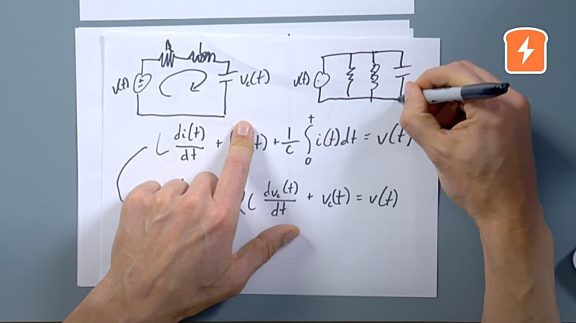 R L
v(t) v_c(t) v(t)
L di(t)/dt + (t) + 1/C ∫₀ᵗ i(t)dt = v(t)
RC dv_c(t)/dt + v_c(t) = v(t)